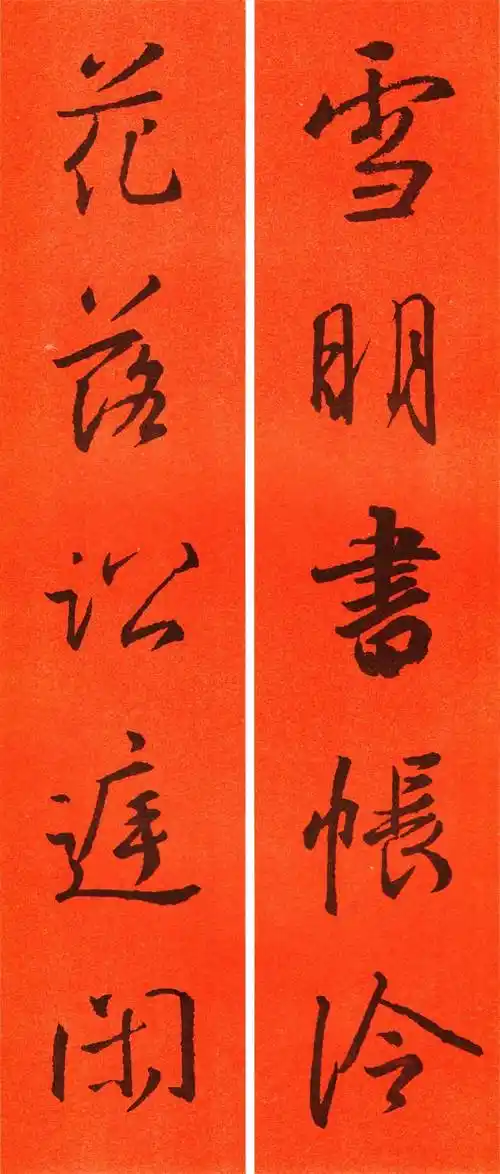 雪明書帳冷
花落訟庭閑